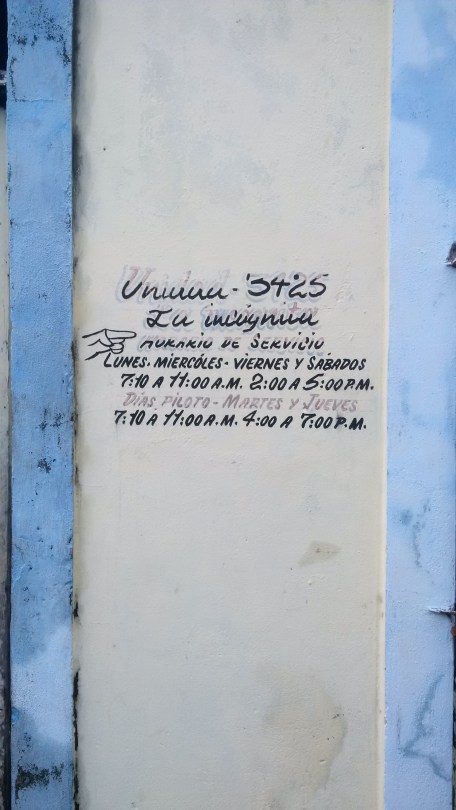 Unidad - 3425
La incógnita
HORARIO DE SERVICIO
LUNES. MIERCÓLES - VIERNES Y SÁBADOS
7:10 A 11:00 A.M. 2:00 A 5:00 P.M.
DÍAS PILOTO - MARTES Y JUEVES
7:10 A 11:00 A.M. 4:00 A 7:00 P.M.